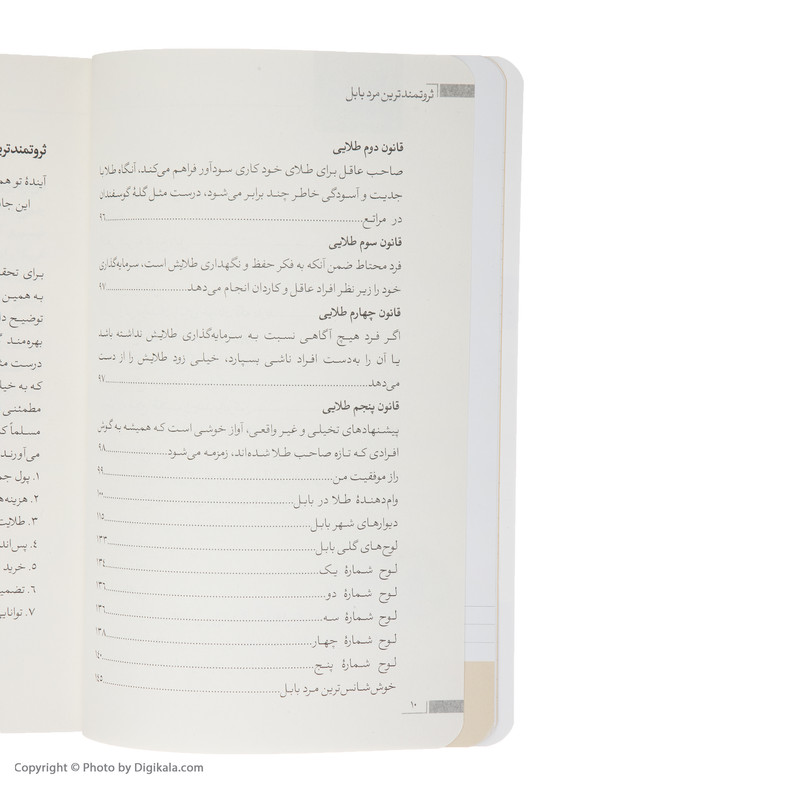 ثروتمندترین مرد بابل
قانون دوم طلایی
صاحب عاقل برای طلای خود کاری سودآور فراهم می‌کند، آنگاه طلا با
جدیت و آسودگی خاطر چند برابر می‌شود، درست مثل گلهٔ گوسفندان
در مراتع ۹۶
قانون سوم طلایی
فرد محتاط ضمن آنکه به فکر حفظ و نگهداری طلایش است، سرمایه‌گذاری
خود را زیر نظر افراد عاقل و کاردان انجام می‌دهد ۹۷
قانون چهارم طلایی
اگر فرد هیچ آگاهی نسبت به سرمایه‌گذاری طلایش نداشته باشد
یا آن را به‌دست افراد ناشی بسپارد، خیلی زود طلایش را از دست
می‌دهد ۹۷
قانون پنجم طلایی
پیشنهادهای تخیلی و غیر واقعی، آواز خوشی است که همیشه به گوش
افرادی که تازه صاحب طلا شده‌اند، زمزمه می‌شود ۹۸
راز موفقیت من ۹۹
وام‌دهندهٔ طلا در بابل ۱۰۰
دیوارهای شهر بابل ۱۱۵
لوح‌های گلی بابل ۱۳۳
لوح شمارهٔ یک ۱۳۴
لوح شمارهٔ دو ۱۳۶
لوح شمارهٔ سه ۱۳۶
لوح شمارهٔ چهار ۱۳۸
لوح شمارهٔ پنج ۱۴۰
خوش‌شانس‌ترین مرد بابل ۱۴۵
۱۰
آیندهٔ تو
برای
به همین
توضیح
بهره‌مند
درست
که به
مطمئنی
مسلماً
می‌آورند
۱. پول
۲.
۳.
۴.
۵. خرید
۶.
۷.
Copyright © Photo by Digikala.com